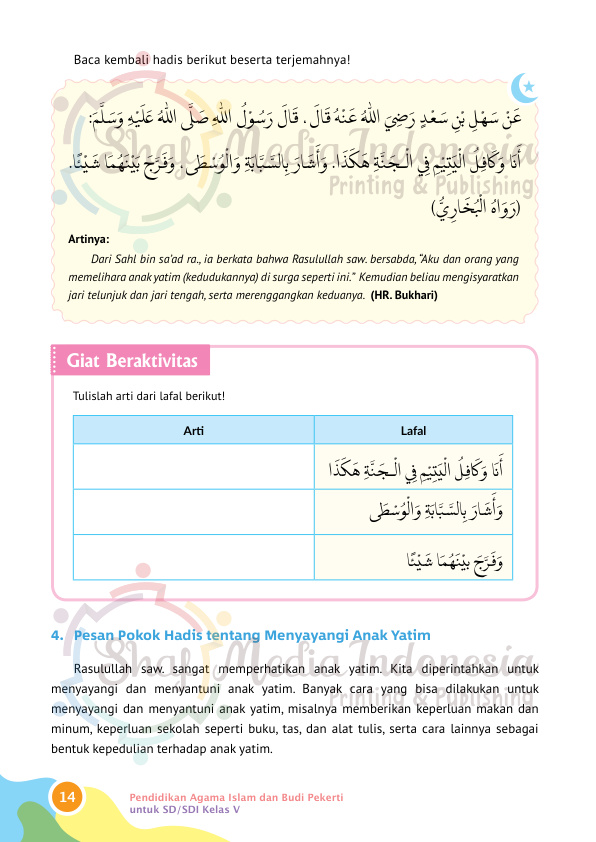 Baca kembali hadis berikut beserta terjemahnya!
عَنْ سَهْلِ بْنِ سَعْدٍ رَضِيَ اللّٰهُ عَنْهُ قَالَ، قَالَ رَسُوْلُ اللّٰهِ صَلَّى اللّٰهُ عَلَيْهِ وَسَلَّمَ:
أَنَا وَكَافِلُ الْيَتِيْمِ فِي الْجَنَّةِ هَكَذَا. وَأَشَارَ بِالسَّبَّابَةِ وَالْوُسْطَى. وَفَرَّجَ بَيْنَهُمَا شَيْئًا.
(رَوَاهُ الْبُخَارِيُّ)
Artinya:
Dari Sahl bin sa'ad ra., ia berkata bahwa Rasulullah saw. bersabda, "Aku dan orang yang
memelihara anak yatim (kedudukannya) di surga seperti ini." Kemudian beliau mengisyaratkan
jari telunjuk dan jari tengah, serta merenggangkan keduanya. (HR. Bukhari)
Shaf Media Indonesia
Printing & Publishing
Giat Beraktivitas
Tulislah arti dari lafal berikut!
Arti Lafal
أَنَا وَكَافِلُ الْيَتِيْمِ فِي الْجَنَّةِ هَكَذَا
وَأَشَارَ بِالسَّبَّابَةِ وَالْوُسْطَى
وَفَرَّجَ بَيْنَهُمَا شَيْئًا
4. Pesan Pokok Hadis tentang Menyayangi Anak Yatim
Rasulullah saw. sangat memperhatikan anak yatim. Kita diperintahkan untuk
menyayangi dan menyantuni anak yatim. Banyak cara yang bisa dilakukan untuk
menyayangi dan menyantuni anak yatim, misalnya memberikan keperluan makan dan
minum, keperluan sekolah seperti buku, tas, dan alat tulis, serta cara lainnya sebagai
bentuk kepedulian terhadap anak yatim.
Shaf Media Indonesia
Printing & Publishing
14
Pendidikan Agama Islam dan Budi Pekerti
untuk SD/SDI Kelas V